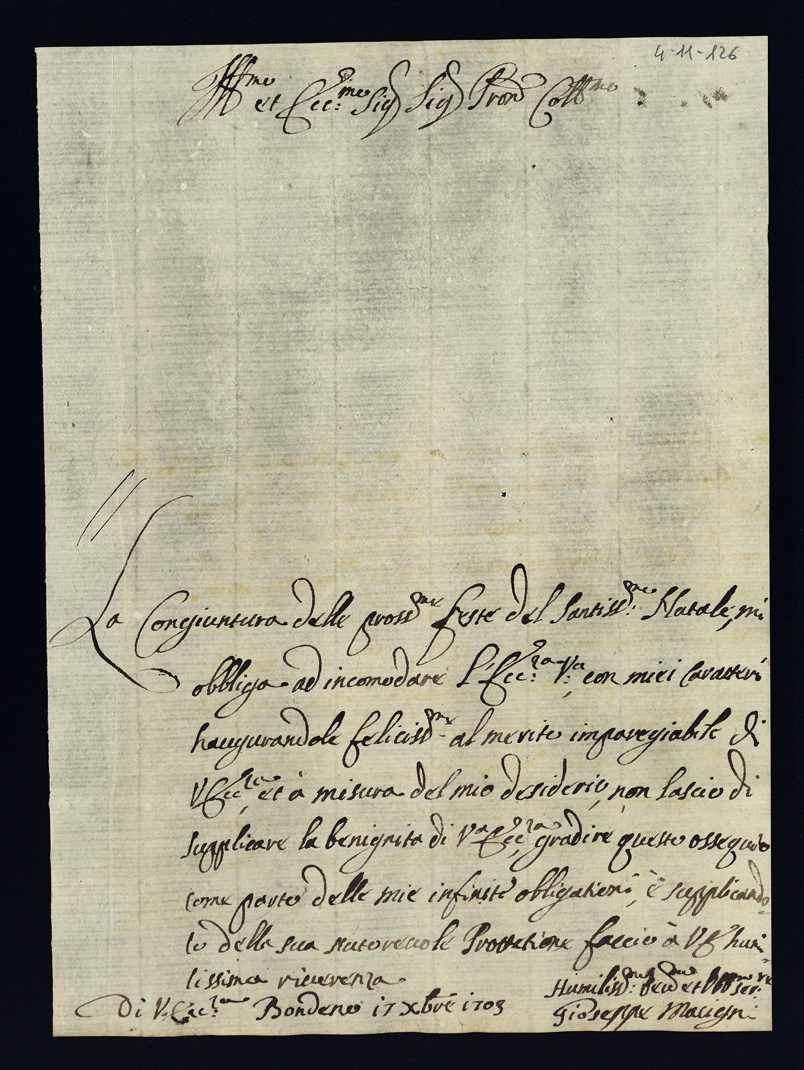 4-11-126
Ill.mo et Ecc.mo Sig. Sig. Pron. Coll.mo
La Congiuntura delle pross.me feste del Santiss.mo Natale, mi
obbliga ad incomodare l'Ecc.za V.a con miei caratteri
haugurandole feliciss.me al merito imparegiabile di
V. Ecc.za, et à misura del mio desiderio, non lascio di
supplicare la benignita di V.a Ecc.za gradire questo ossequio
come parto delle mie infinite obligationi, è supplicando
lo della sua autorevole Prottetione faccio à V.E. humi
lissima riverenza
Di V. Ecc.za Bondeno 17 Xbre 1709
Humiliss.mo et Obb.mo ser.
Gioseppe